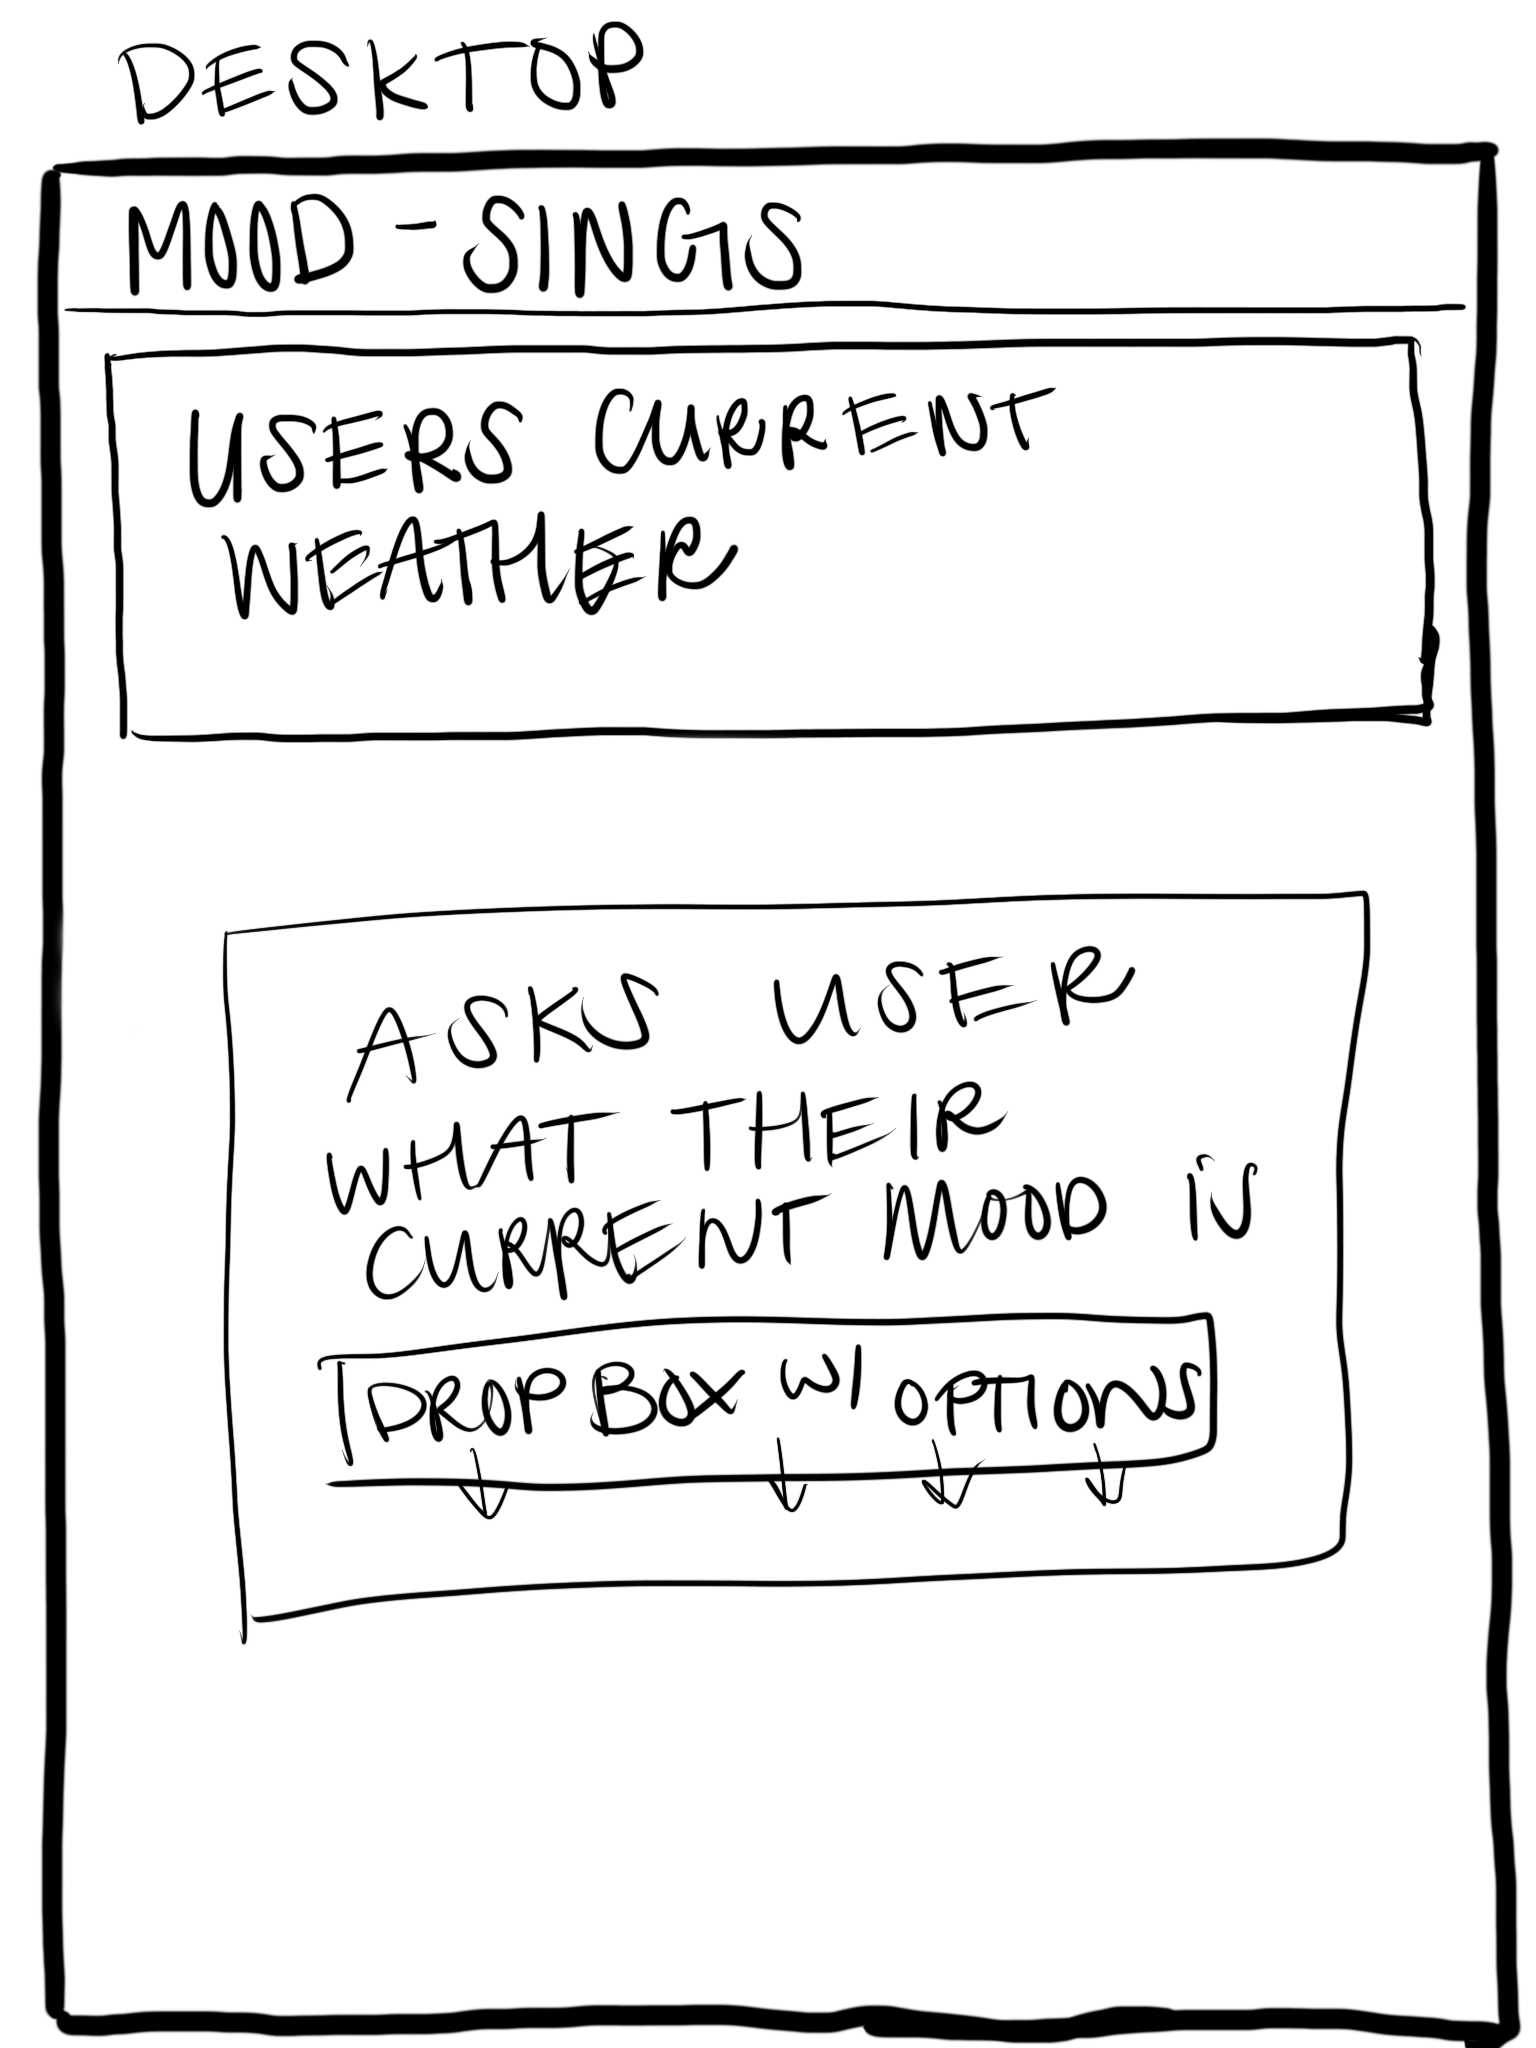 DESKTOP
MOOD - SINGS
USERS CURRENT
WEATHER
ASKS USER
WHAT THEIR
CURRENT MOOD IS
DROP BOX W/ OPTIONS